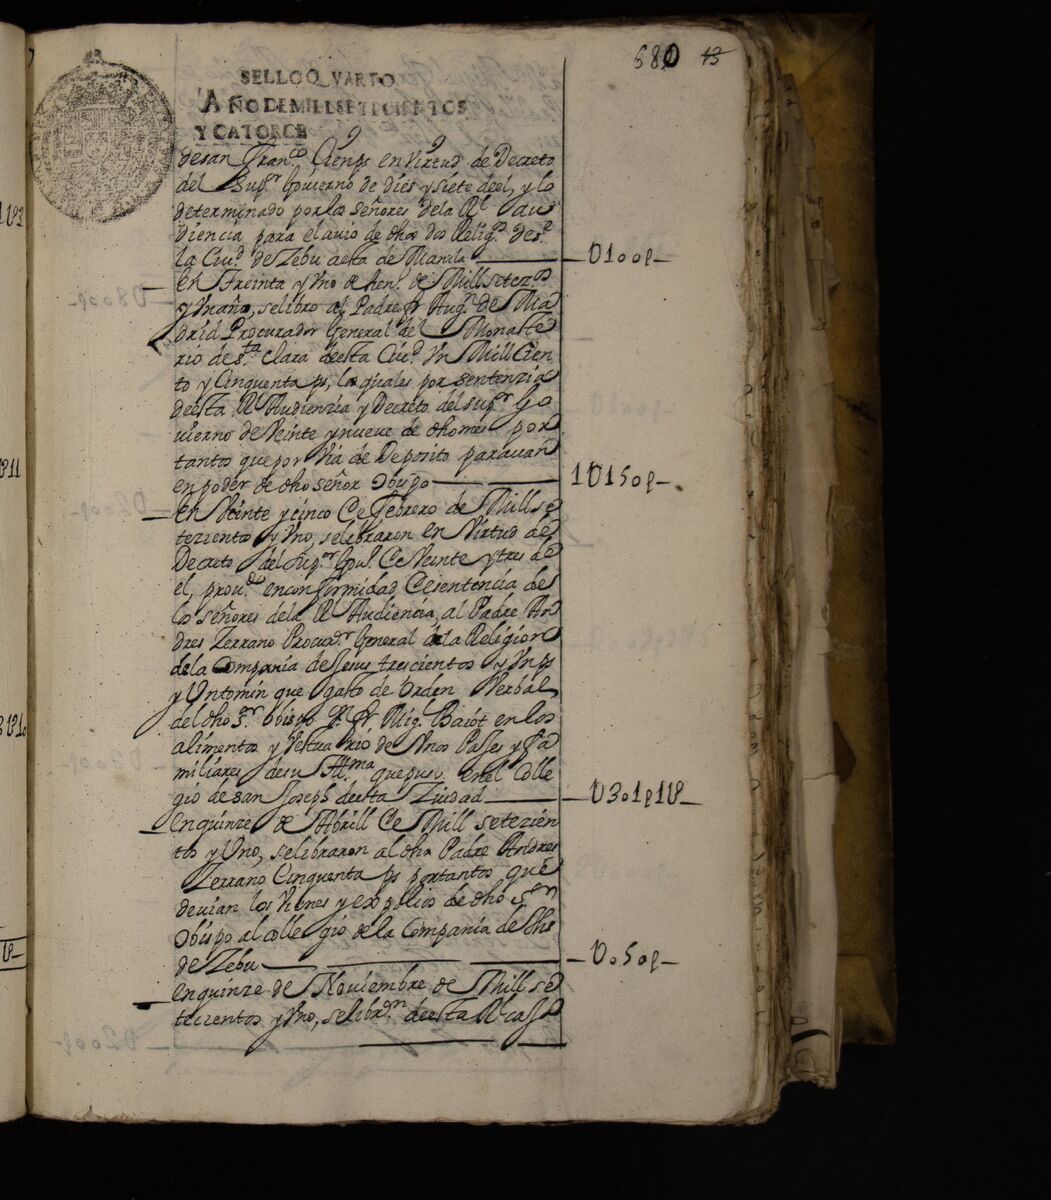 680 13
SELLO QVARTO
AÑO DE MILL SETECIENTOS
Y CATORCE
de san Fran.co Cien ps en virtud de Decreto
del Sup.or Govierno de dies y siete de el, y lo
determinado por los señores de la Rl au
diencia para el avio de dhos dos Relig.s des.e
la Ciu.d de Zebu a esta de Manila U100p
En treinta y Uno de hen.o de Mill setez.os
y Un año, se libro al Padre fr Aug.n de Ma
drid Procurador General del Monaste
rio de s.ta Clara de esta Ciu.d Un Mill Cien
to y Cinquenta ps, los quales por sentenzia
de esta Rl Audienzia y Decreto del sup.or Go
vierno de Veinte y nueve de dho mes por
tantos que por Via de Deposito paravan
en poder de dho señor Obispo 1U150p
En Veinte y cinco de febrero de Mill se
tezientos y Uno, se libraron en Virtud de
Decreto del Sup.or Gov.o de Veinte y tres de
el, prov.do en conformidad de sentencia de
los señores de la Rl Audiencia, al Padre An
dres Zerrano Procur.or General de la Religion
de la Compania de Jesus trescientos y Un ps
y Un tomin que gasto de orden Verbal
del dho s.or obispo D. fr Mig. Baiot en los
alimentos y Vestuario de Unos Pajes y fa
miliares de su Ill.ma que puso en el Colle
gio de san Joseph de esta Ziudad U301p1U
En quinze de Abrill de Mill setezien
tos y Uno, se libraron al dho Padre Andres
Zerrano Cinquenta ps por tantos que
devian los Vienes y expolios de dho S.or
Obispo al collegio de la Compania de Jhs
de Zebu U050p
En quinze de Noviembre de Mill se
tecientos y Uno, se libr.on de esta Rl caja